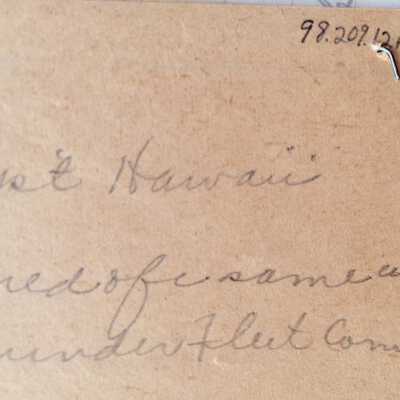 98.209.12
st Hawaii
ed ofc. same
under Fleet Com